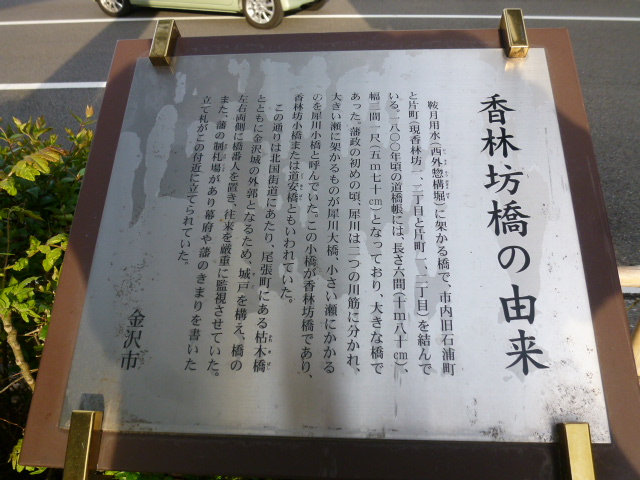 香林坊橋の由来
鞍月用水（西外惣構堀）に架かる橋で、市内旧石浦町
と片町（現香林坊一、二丁目と片町一、二丁目）を結んで
いる。一八〇〇年頃の道橋帳には、長さ六間（十ｍ八十㎝）、
幅三間一尺（五ｍ七十㎝）となっており、大きな橋で
あった。藩政の初めの頃、犀川は二つの川筋に分かれ、
大きい瀬に架かるものが犀川大橋、小さい瀬にかかる
のを犀川小橋と呼んでいた。この小橋が香林坊橋であり、
香林坊小橋または道安橋ともいわれていた。
この通りは北国街道にあたり、尾張町にある枯木橋
とともに金沢城の外郭となるため、城戸を構え、橋の
左右両側に橋番人を置き、往来を厳重に監視させていた。
また、藩の制札場があり幕府や藩のきまりを書いた
立て札がこの付近に立てられていた。
金沢市